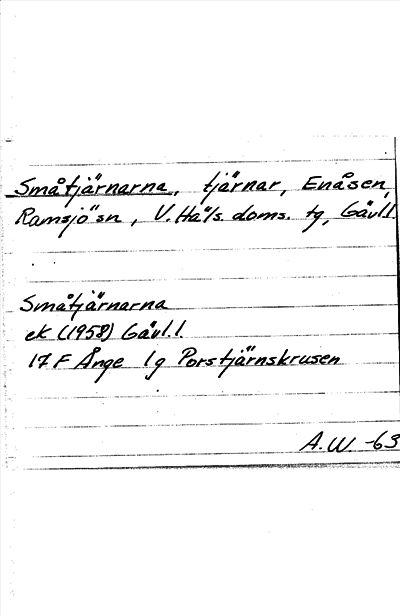 Småtjärnarna, tjärnar, Enåsen,
Ramsjö sn, V. Häls. doms. tg, Gävl.l.
Småtjärnarna
ek (1958) Gävl.l.
17 F Ånge lg Porstjärnskrusen
A.W. -63